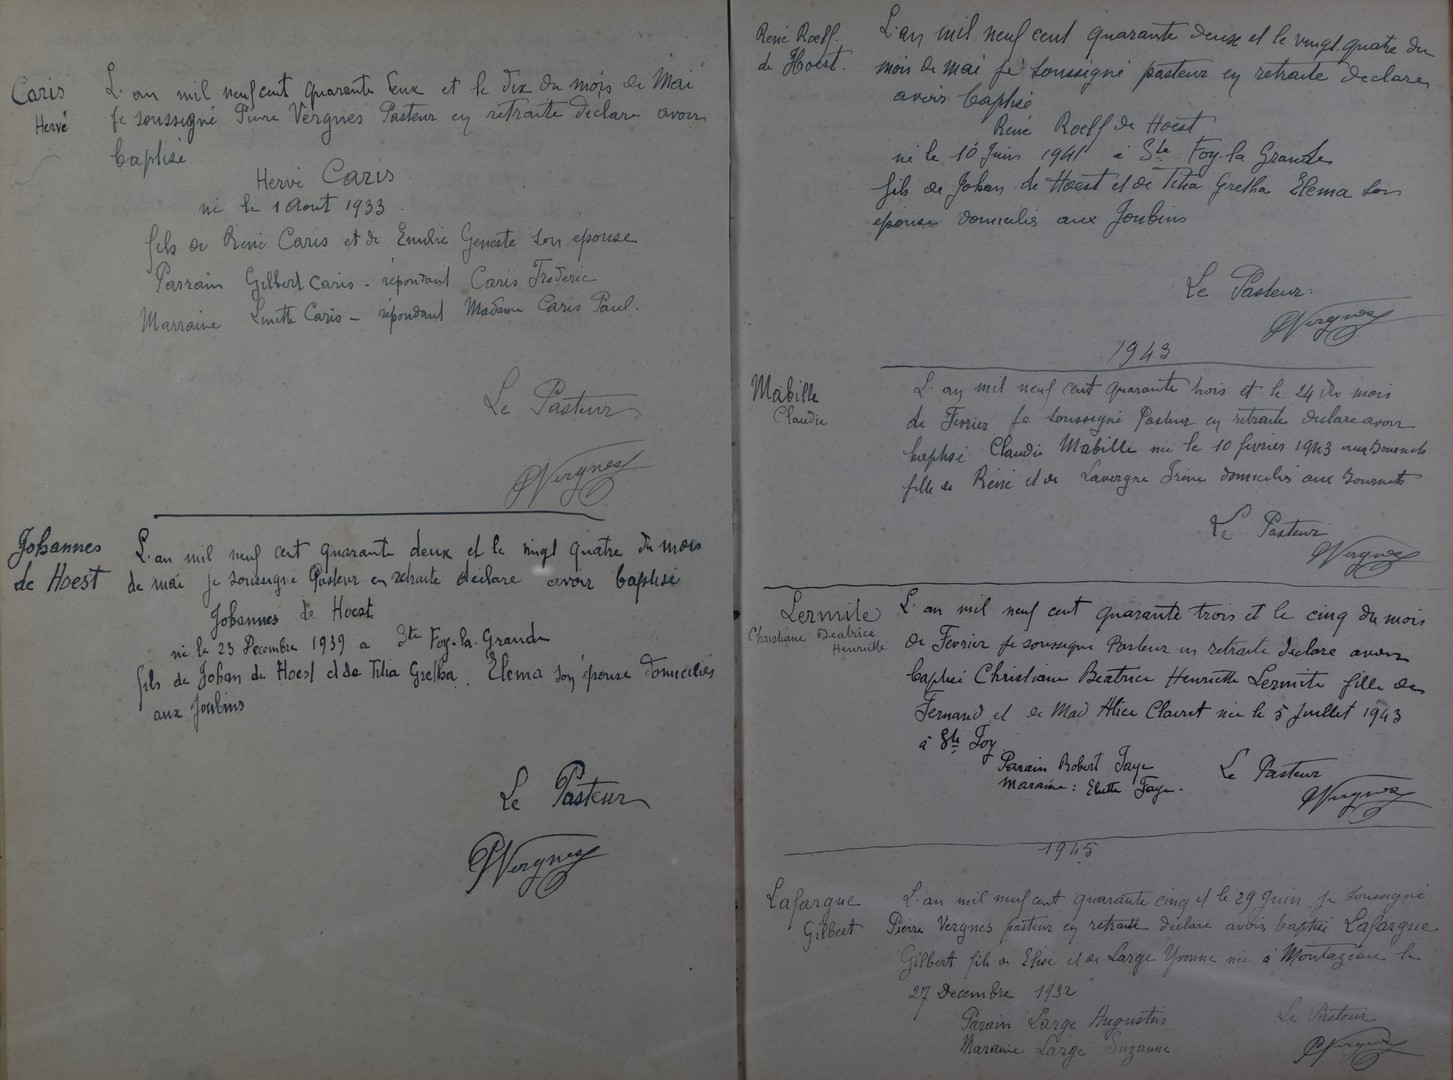 Caris
Hervé
L'an mil neuf cent quarante deux et le dix du mois de Mai
je soussigné Pierre Vergnes Pasteur en retraite declare avoir
baptisé
Hervé Caris
né le 1 Aout 1933
fils de René Caris et de Emilie Geneste son epouse
Parrain Gilbert Caris - répondant Caris Frederic
Marraine Linette Caris - répondant Madame Caris Paul.
Le Pasteur
PVergnes
Johannes
de Hoest
L'an mil neuf cent quarante deux et le vingt quatre du mois
de mai je soussigné Pasteur en retraite déclare avoir baptisé
Johannes de Hoest
né le 23 Decembre 1939 a Ste Foy-la-Grande
fils de Johan de Hoest et de Titia Gretha Elema son épouse domiciliés
aux Joubins
Le Pasteur
PVergnes
René Roelf
de Hoest.
L'an mil neuf cent quarante deux et le vingt quatre du
mois de mai je soussigné pasteur en retraite declare
avoir baptisé
René Roelf de Hoest
né le 10 Juin 1941 à Ste Foy-la Grande
fils de Johan de Hoest et de Titia Gretha Elema son
epouse domiciliés aux Joubins
Le Pasteur.
PVergnes
1943
Mabille
Claudie
L'an mil neuf cent quarante trois et le 24 du mois
de Fevrier je soussigné Pasteur en retraite declare avoir
baptisé Claudie Mabille née le 10 fevrier 1943 aux
fille de René et de Lavergne Irène domiciliés aux
Le Pasteur
PVergnes
Lermite
Christiane Beatrice
Henriette
L'an mil neuf cent quarante trois et le cinq du mois
de Fevrier je soussigné Pasteur en retraite declare avoir
baptisé Christiane Beatrice Henriette Lermite fille de
Fernand et de Mad Alice Clairet née le 5 Juillet 1943
à Ste Foy
Parain Robert Faye
Maraine: Faye.
Le Pasteur
PVergnes
1945
Lafargue
Gilbert
L'an mil neuf cent quarante cinq et le 29 Juin je soussigné
Pierre Vergnes pasteur en retraite déclare avoir baptisé Lafargue
Gilbert fils de Elisé et de Large Yvonne né à Montazeau le
27 Decembre 1932
Parain Large Augustin
Maraine Large Suzanne
Le Pasteur
PVergnes